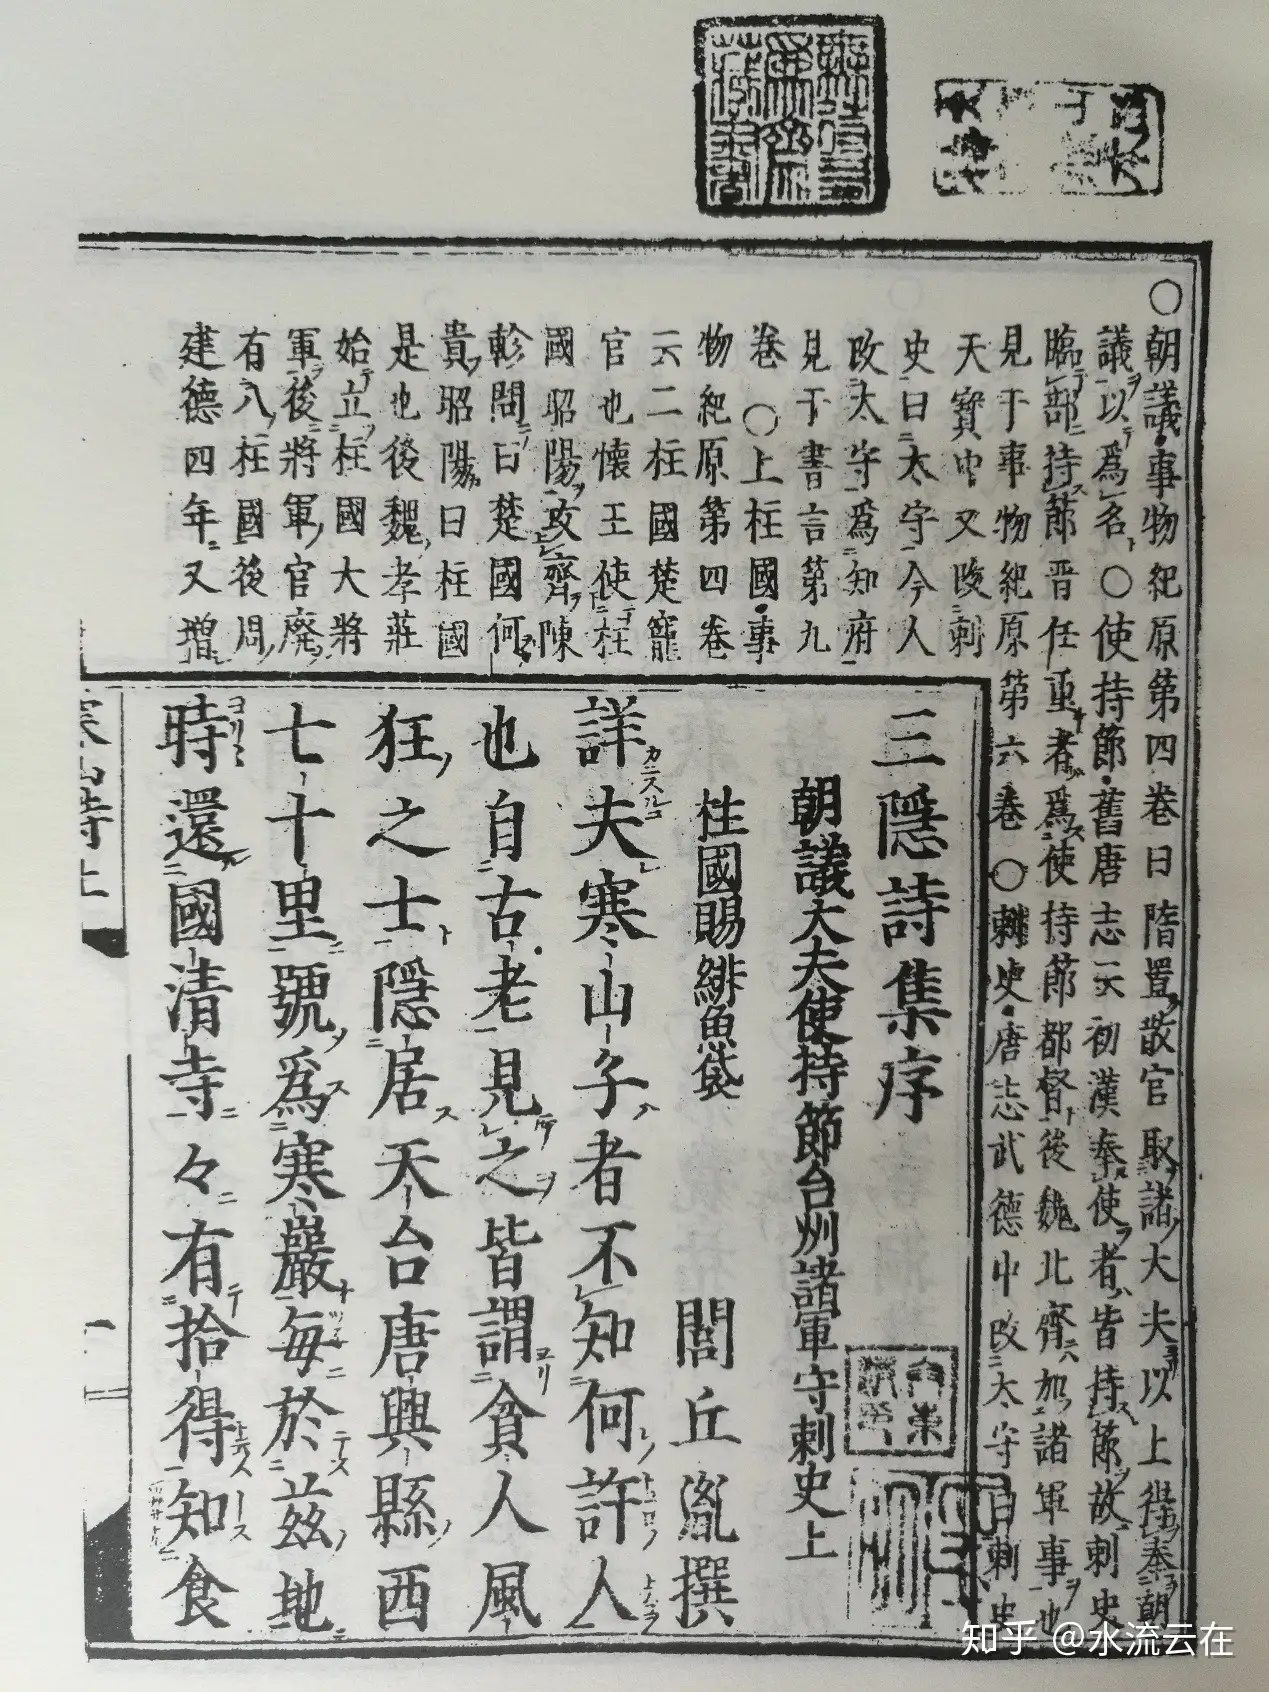 ○朝議事物紀原第四卷曰隋置散官取諸大夫以上從秦朝
議以為名○使持節舊唐志云初漢奉使者皆持節故刺史
臨部持節晋任重者為使持節都督後魏北齊加諸軍事也
見于事物紀原第六卷○刺史唐志武德中改太守曰刺史
天寶中又改刺
史曰太守今人
改太守為知府
見于書言第九
卷○上柱國事
物紀原第四卷
云二柱國楚寵
官也懐王使柱
國昭陽攻齊陳
軫問曰楚國何
貴昭陽曰柱國
是也後魏孝莊
始立柱國大將
軍後將軍官廃
有八柱國後周
建德四年又增
三隱詩集序
朝議大夫使持節台州諸軍守刺史上
柱國賜緋魚袋
閭丘胤撰
詳夫寒山子者不知何許人
也自古老見之皆謂貧人風
狂之士隱居天台唐興縣西
七十里號為寒巖每於茲地
時還國清寺々有拾得知食
寒山詩上
一
知乎 @水流云在